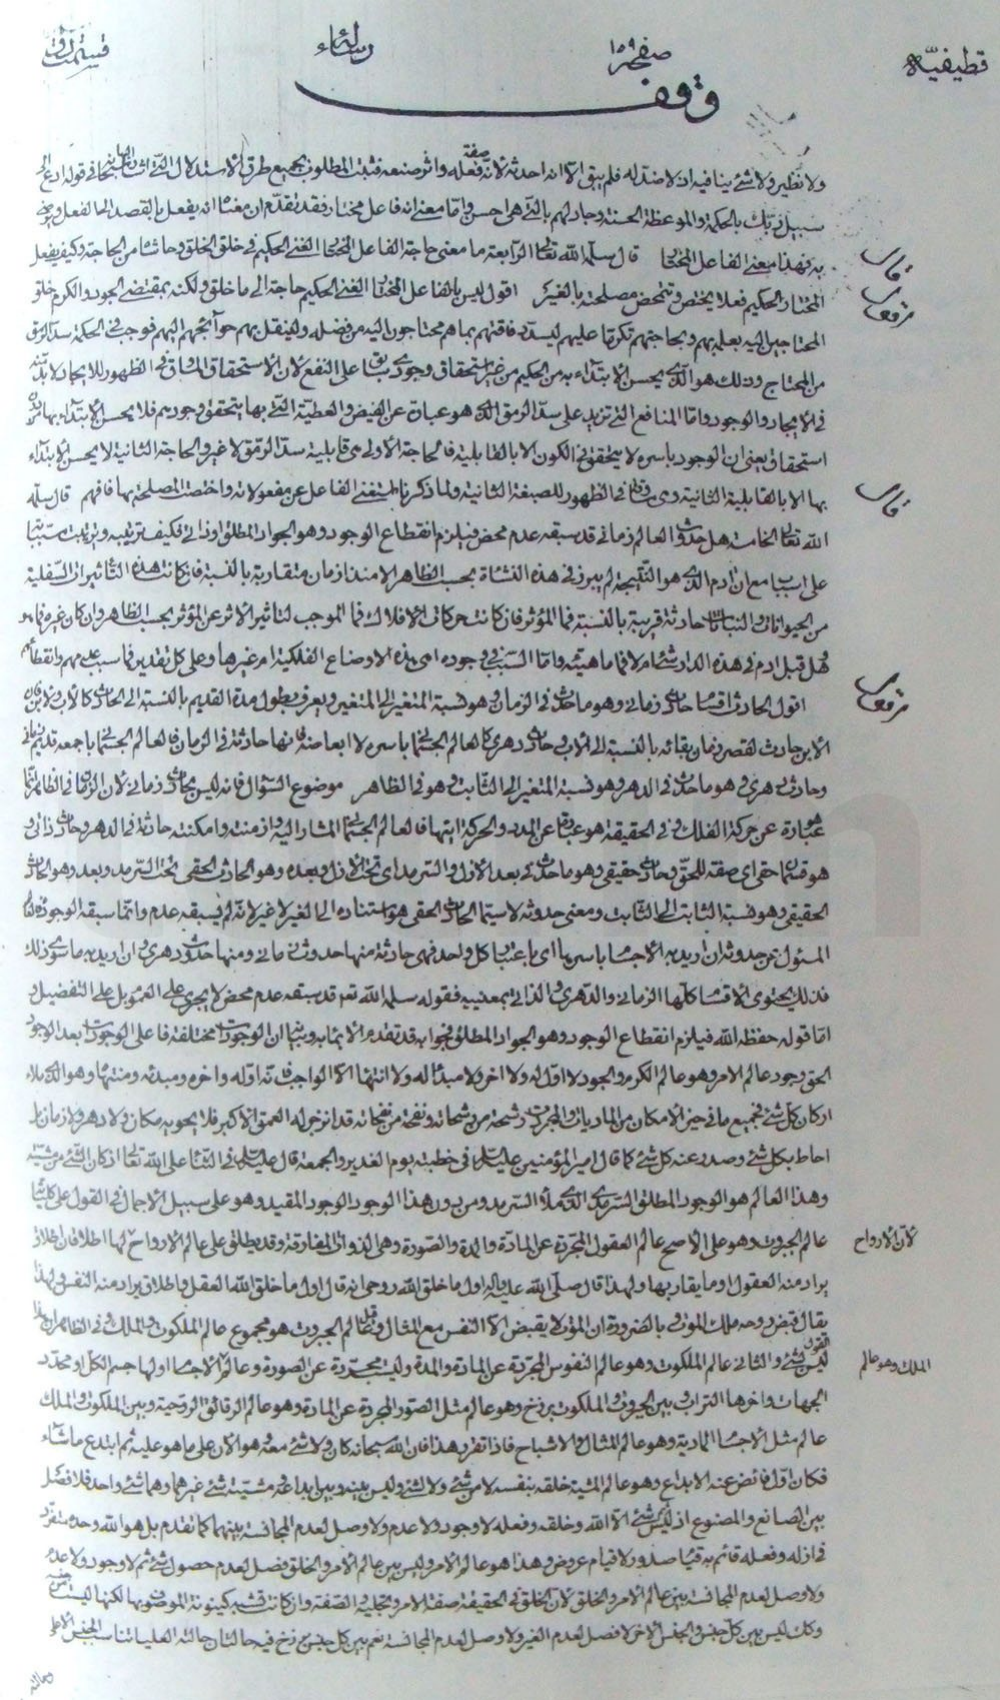 قطيفيّة صفحة ١٥٩ رسالة
وقف
ولا نظير ولا شئ ينافيه اذ لا ضدّ له فلم يبق الّا انه احدثه لانّه صفة فعله واثر صنعه فثبت المطلوب بجميع طرق الاستدلال الّتى فى قوله ادع الى
سبيل ربّك بالحكمة والموعظة الحسنة وجادلهم بالّتى هى احسن وامّا معنى انه فاعل مختار فقد تقدّم ان معناه انه يفعل بالقصد
به فهذا معنى الفاعل المختار قال سلّمه الله تعالى الرّابعة ما معنى حاجة الفاعل المختار الغنى الحكيم فى خلق الخلق وحاشاه من الحاجة وكيف يفعل
قال
المختار الحكيم فعلا يختص وتمحض مصلحته بالغير اقول ليس بالفاعل المختار الغنى الحكيم حاجة الى ما خلق ولكنه بمقتضى الجود والكرم خلق
المحتاجين اليه بعلمه بهم وبحاجتهم تكرّما عليهم ليسدّ فاقتهم بما هم محتاجون اليه من فضله ولينقل بهم حوآئجهم اليهم فوجب فى الحكمة سدّ الرمق
من المحتاج وذلك هو الّذى يحسن الابتدآء به من الحكيم من غير استحقاق وجودى سابق على النفع لان الاستحقاق المساوق الظهور للايجاد لا بدّ منه
فى الايجاد والوجود وامّا المنافع الّتى تزيد على سدّ الرمق الّذى هو عبارة عن الفيض والعطيّة الّتى بها يتحقق وجودهم فلا يحسن الابتدآء بها من دون
استحقاق يعنى ان الوجود باسره لا يتحقق فى الكون الا بالقابلية فالحاجة الاولى هى قابلية سدّ الرمق لا غير والحاجة الثانية لا يحسن الابتدآء
بها الا بالقابلية الثانية وهى فى الظهور للصيغة الثانية ولما ذكرنا يستغنى الفاعل عن مفعولاته واختصت المصلحة بها فافهم قال سلّمه
قال
الله تعالى الخامسة هل حدوث العالم زمانى قد سبقه عدم محض فيلزم انقطاع الوجود وهو الجواد المطلق او ذاتى فكيف ترتيبه وترتيب مسبباته
على اسبابه مع ان ادم الّذى هو النّتيجة لم يبرز فى هذه النشاة بحسب الظاهر الا منذ ازمان متقاربة بالنسبة فان كانت هذه التأثيرات السفلية
من الحيوانات والنباتات حادثة قريبة بالنسبة فما المؤثر فان كانت حركات الافلاك فما الموجب لتاثير الاثر عن المؤثر بحسب الظاهر وان كان غيره فما هو
وهل قبل ادم فى هذه الدار شئ ام لا فما ماهيته وامّا السبب فى وجوده اهى هذه الاوضاع الفلكية ام غيرها وعلى كل تقدير فما سبب عدمهم وانقطاعهم
اقول الحادث اقسام حادث زمانى وهو ما حدث فى الزمان وهو نسبة المتغير الى المتغير ويعرف بطول مدة القديم بالنسبة الى الحادث كالاب والابن فان
الابن حادث لقصر زمان بقائه بالنسبة الى الاب وحادث دهرى كالعالم الجسمانى باسره لا ابعاضه فانها حادثة فى الزمان فالعالم الجسمانى باجمعه قديم زمانى
وحادث دهرى وهو ما حدث فى الدهر وهو نسبة المتغير الى الثابت وهو فى الظاهر موضوع السّؤال فانه ليس بحادث زمانى لان الزمان فى الظاهر انما
هو عبارة عن حركة الفلك وفى الحقيقة هو عبارة عن المدد والحركة ابتها فالعالم الجسمانى المشار اليه وازمنته وامكنته حادثة فى الدهر وحادث ذاتى و
هو قسمان حقى اى صفة للحق وحادث حقيقى وهو ما حدث بعد الازل والسرمد اى تحت الازل وبعده وهو الحادث الحقى تحت السّرمد وبعده وهو الحادث
الحقيقى وهو نسبة الثابت الى الثابت ومعنى حدوثه لا سيّما الحادث الحقى هو استناده الى الغير لا غير لانه لم يسبقه عدم وانما سبقه الوجود فالعالم
المسئول عن حدوثه ان اريد به الاجسام باسرها اى باعتبار كل واحد فهى حادثة منها حدوث زمانى ومنها حدوث دهرى وان اريد به ما سوى ذلك
فذلك يحتوى الاقسام كلّها الزمانى والدّهرى والذاتى بمعنييه فقوله سلّمه الله تعالى قد سبقه عدم محض لا يجرى على العموم بل على التفضيل و
امّا قوله حفظه الله فيلزم انقطاع الوجود وهو الجواد المطلق فجوابه قد تقدّم الايماء به وبيانه ان الوجودات مختلفة فاعلى الوجودات بعد الوجود
الحق وجود عالم الامر وهو عالم الكرم والجود لا اوّل له ولا اخر ولا مبدأ له ولا انتهاء الّا الواجب فانّه اوّله واخره ومبدئه ومنتهاه وهو الّذى ملاء
اركان كل شئ فجميع ما فى حيّز الامكان من الماديات والمجردات رشحة من رشحاته ونفحة من نفحاته قد انزجر له العمق الاكبر فلا يحويه مكان ولا دهر ولا زمان بل
احاط بكل شئ وصدر عنه كل شئ كما قال امير المؤمنين عليه السلام فى خطبته يوم الغدير والجمعة قال عليه السلام فى الثناء على الله تعالى اذ كان الشئ من مشيّته
وهذا العالم هو الوجود المطلق السّرمدى الّذى ملأ السّرمد ومن دون هذا الوجود الوجود المقيد وهو على سبيل الاجمال فى القول على
عالم الجبروت وهو على الاصح عالم العقول المجرّدة عن المادّة والمدة والصّورة وهى الذوات المفارقة وقد يطلق على عالم الارواح لها اطلاقان اطلاق
لان الارواح
يراد منه العقول او ما يقاربها ولهذا قال صلّى الله عليه واله اول ما خلق الله روحى مع انه قال اول ما خلق الله العقل واطلاق يراد منه النفس ولهذا
يقال قبض روحه ملك الموت وبالضرورة ان الموت لا يقبض الّا النفس مع المثال وقيل عالم الجبروت هو مجموع عالم الملكوت والملك وفى الظاهر ان هذا القول
ليس بشئ والثانى عالم الملكوت وهو عالم النفوس المجرّدة عن المادة والمدة وليست مجرّدة عن الصورة وعالم الاجسام اولها جسم الكل او محدّد
الملك وهو عالم
الجهات واخرها التراب وبين الجبروت والملكوت برزخ وهو عالم مثل الصّور المجردة عن المادة وهو عالم الرقائق الروحية وبين الملكوت والملك
عالم مثل الاجسام المادية وهو عالم المثال والاشباح فاذا تقرر هذا فان الله سبحانه كان ولا شئ معه وهو الان على ما هو عليه ثم ابتدع ما شاء
فكان اوّل فائض عنه الابداع وهو عالم المشية خلقه بنفسه لا من شئ ولا لشئ وليس بينه وبين ابداعه ومشيته شئ غيرهما وهما شئ واحد فلا فصل
بين الصانع والمصنوع اذ ليس شئ الّا الله وخلقه وفعله لا وجود ولا عدم ولا وصل لعدم المجانسة بينهما كما تقدم بل هو الله وحده متفرّد
فى ازله وفعله قائم به قيام صدور لا قيام عروض وهذا هو عالم الامر وليس بين عالم الامر والخلق فصل لعدم حصول شئ ثم لا وجود ولا عدم
ولا وصل لعدم المجانسة بين عالم الامر والخلق لان الخلق فى الحقيقة صفة الامر وتجليه والصّفة وان كانت تشبه كينونة الموصوف بها لكنها ليست من جنسه
وكك ليس بين كل جنس والجنس الاخر لا فصل لعدم الغير ولا وصل لعدم المجانسة نعم بين كل جنسين برزخ فيه حالتان حالته العليا تناسب الجنس الاعلى
وحالته